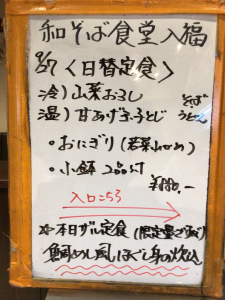 和そば食堂入福
8/7〈日替定食〉
冷)山菜おろし そば
温)甘あげきざみとじ うどん
・おにぎり(若菜わかめ)
・小鉢2品付
¥880.-
入口こちら
本日ザル定食(限定量ござ
鯛めし風ほぐし身の炊込